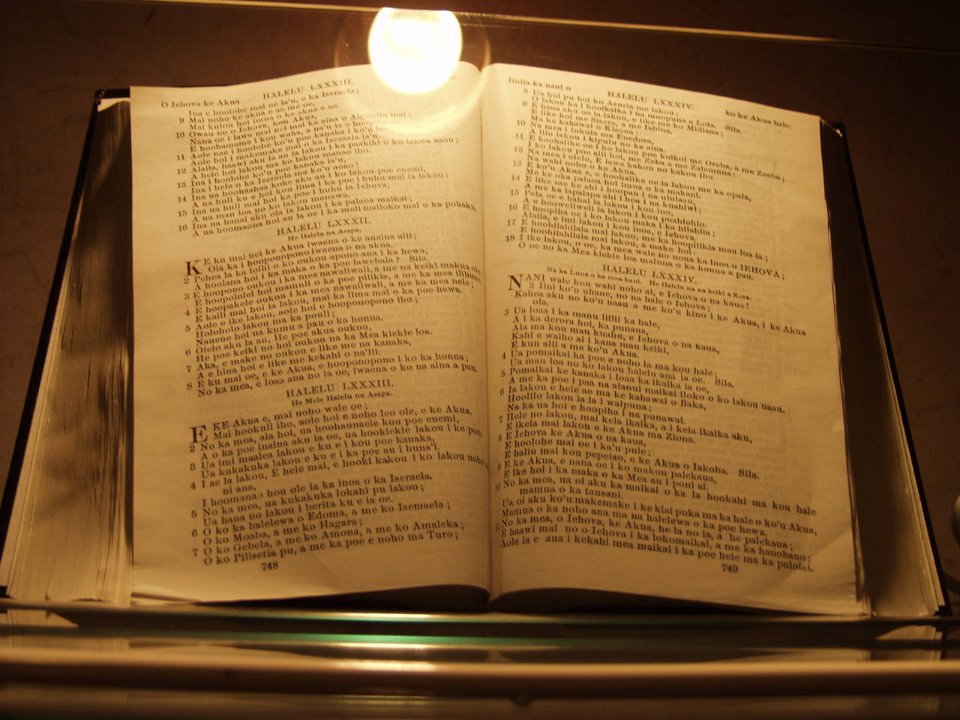 HALELU LXXXIII.
O Iehova ke Akua
Ina e hoolohe mai oe ia'u, e ka Iseraela;
9 Mai noho ke akua e ae me oe,
Mai kulou hoi oe i ke akua e ae.
10 Owau no o Iehova, kou Akua,
Nana oe i lawe mai hoi mai ka aina o Aigupita mai;
E hoohamama i kou waha, a na'u ia e hoopiha.
11 Aole nae i hoolohe ko'u poe kanaka i ko'u leo,
Aole hoi i makemake mai o ka Iseraela ia'u.
12 Alaila, haawi aku la au ia lakou i ka paakiki o ko lakou naau;
A hele hoi lakou ma ko lakou manao iho.
13 Ina i hoolohe ko'u poe kanaka ia'u,
Ina i hele o ka Iseraela ma ko'u aoao;
14 Ina ua hoohaahaa koke aku au i ko lakou poe enemi,
A ua huli ku e aku kou lima i ka poe huhu mai ia lakou:
15 Ina ua huli mai hoi ka poe i inaina ia Iehova,
A ua mau loa no hoi ko lakou manawa.
16 Ina ua hanai aku oia ia lakou i ka palaoa maikai;
A na hoomaona hoi au ia oe i ka meli mailoko mai o ka pohaku.
HALELU LXXXII.
He Halelu na Asapa.
KE ku mai nei ke Akua iwaena o ke anaina alii;
Ola ka i hooponopono iwaena o na akua.
2 Pehea la ka loihi o ko oukou apono ana i ka hewa,
A hoolana hoi i ka maka o ka poe lawehala? Sila.
3 E hoopono oukou i ka mea nawaliwali, a me na keiki makua ole,
E hoopololei hoi mamuli o ka poe pilikia, a me ka mea ilihune;
4 E hoopakele oukou i ka mea nawaliwali, a me ka mea nele;
E kaili mai hoi ia lakou, mai ka lima mai o ka poe hewa.
5 Aole e ike lakou, aole hoi e hooponopono iho;
Holoholo lakou ma ka pouli;
Naueue hoi na kumu a pau o ka honua.
6 Olelo aku la au, He poe akua oukou,
He poe keiki no hoi oukou na ka Mea kiekie loa.
7 Aka, e make no oukou e like me na kanaka,
A e hina hoi e like me kekahi o na'lii.
8 E ku mai oe, e ke Akua, e hooponopono i ko ka honua;
No ka mea, e loaa ana no ia oe, iwaena o ko na aina a pau.
HALELU LXXXIII.
He Mele Halelu na Asapa.
E KE Akua e, mai noho wale oe;
Mai hookuli iho, aole hoi e noho leo ole, e ke Akua.
2 No ka mea, aia hoi, ua hoohaunaele kou poe enemi,
A o ka poe inaina aku ia oe, ua hookiekie lakou i ke poo.
3 Ua imi maalea lakou e ku e i kou poe kanaka,
Ua kukakuka lakou e ku e i ka poe au i huna'i.
4 I ae la lakou, E hele mai, e hooki kakou i ko lakou noho
ni ana,
I hoomanao hou ole ia ka inoa o ka Iseraela.
5 No ka mea, ua kukakuka lokahi pu lakou;
Ua hana no lakou i berita ku e ia oe.
6 O ko ka halelewa o Edoma, a me ko Isemaela;
O ko Moaba, a me ko Hagara;
7 O ko Gebela, a me ko Amona, a me ko Amaleka;
O ko Pilisetia pu, a me ka poe e noho ma Turo;
748
HALELU LXXXIV.
ko ke Akua hale.
8 Ua hui pu hoi ko Asuria me lakou;
O lakou ka i hoolkaika i na moopuna a Lota. Sila.
9 E hana aku oe ia lakou, e like me ko Midiana;
E like hoi me Sisera, a me Iabina,
Ma ke kahawai o Kisona;
10 Na mea i lukuia ma Enedora,
A lilo lakou i kipulu no ka aina.
11 E hoohalike oe i ko lakou poe koikoi me Oreba, a me Zeeba;
I ko lakou poe alii hoi, me Zeba, a me Zalemuna;
12 Na mea i olelo, E lawe kakou no kakou iho
I na wahi noho o ke Akua.
13 E ko'u Akua e, e hoohalike oe ia lakou me ka opala,
Me ka mauu hoi imua o ka makani.
14 E like me ka palaoa hoi imua o ka ululaau,
A me ka lapalapa ahi i hoopau i na kuahiwi;
15 Pela oe e hahai ia lakou i kou ino,
A e hooweliweli ia lakou i kou puahiohio.
16 E hoopiha oe i ko lakou maka i ka hilahila;
Alaila, e imi lakou i kou inoa, e Iehova.
17 E hoohilahilaia mai lakou, me ka hoopilikia mau loa ia;
E hoohilahilaia mai lakou, a make hoi:
18 I ike lakou, o oe, ka mea nona wale no ka inoa o IEHOVA;
O oe no ka Mea kiekie loa maluna o ka honua a pau.
HALELU LXXXIV.
Na ka Luna o ka mea kani. He Halelu na na keiki a Kora.
NANI wale kou wahi noho ai, e Iehova o na kaua;
2 Iini ko'u uhane, no na hale o Iehova;
Kahea aku no ko'u naau a me ko'u kino i ke Akua, i ke Akua
ola.
3 Ua loaa i ka manu liilii ka hale,
A i ka derora hoi, ka punana,
Aia ma kou mau kuahu, e Iehova o na kaua,
Kahi e waiho ai i kana mau keiki,
E kuu alii, a me ko'u Akua.
4 Ua pomaikai ka poe e noho la ma kou hale;
Ua mau loa no ko lakou halelu ana ia oe. Sila.
5 Pomaikai ke kanaka i loaa ka ikaika ia oe,
A me ka poe i paa na alanui maikai iloko o ko lakou naau,
6 Ia lakou e hele ae ma ke kahawai o Baka,
Hoolilo lakou ia ia i waipuna;
Na ka ua hoi e hoopiha i na punawai.
7 Hele no lakou, mai kela ikaika, a i keia ikaika aku,
E ikeia mai lakou e ke Akua ma Ziona.
8 E Iehova ke Akua o na kaua,
E hoolohe mai oe i ka'u pule;
E haliu mai kou pepeiao, e ke Akua o Iakoba. Sila.
9 E ke Akua, e nana oe i ko makou palekaua,
E ike hoi i ka maka o ka Mea au i poni ai.
10 No ka mea, ua oi aku ka maikai o ka la hookahi ma kou hale
mamua o ka tausani.
Ua oi aku ko'u makemake i ke kiai puka ma ka hale o ko'u Akua,
Mamua o ka noho ana ma na halelewa o ka poe hewa.
11 No ka mea, o Iehova, ke Akua, he la no ia, a he palekaua;
E haawi mai no o Iehova i ka lokomaikai, a me ka hanohano;
Aole ia e aua i kekahi mea maikai i ka poe hele ma ka pololei.
749